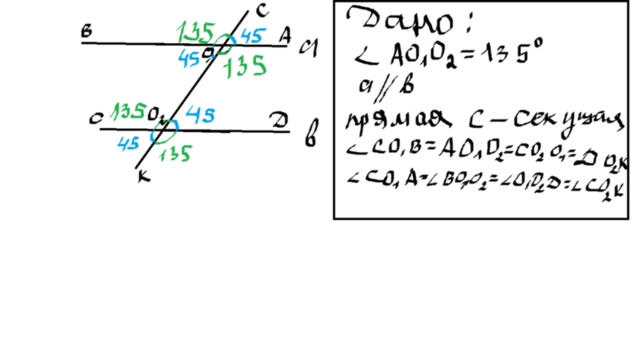 C
B 135 45 A a
O 45 135
C 135 O₂ 45 D b
45 135
K
Дано:
∠ AO₁O₂ = 135°
a // b
прямая C - секущая
∠CO₁B = AO₁O₂ = CO₂O₁ = DO₂K
∠CO₁A = ∠BO₁O₂ = ∠O₁O₂D = ∠CO₂K